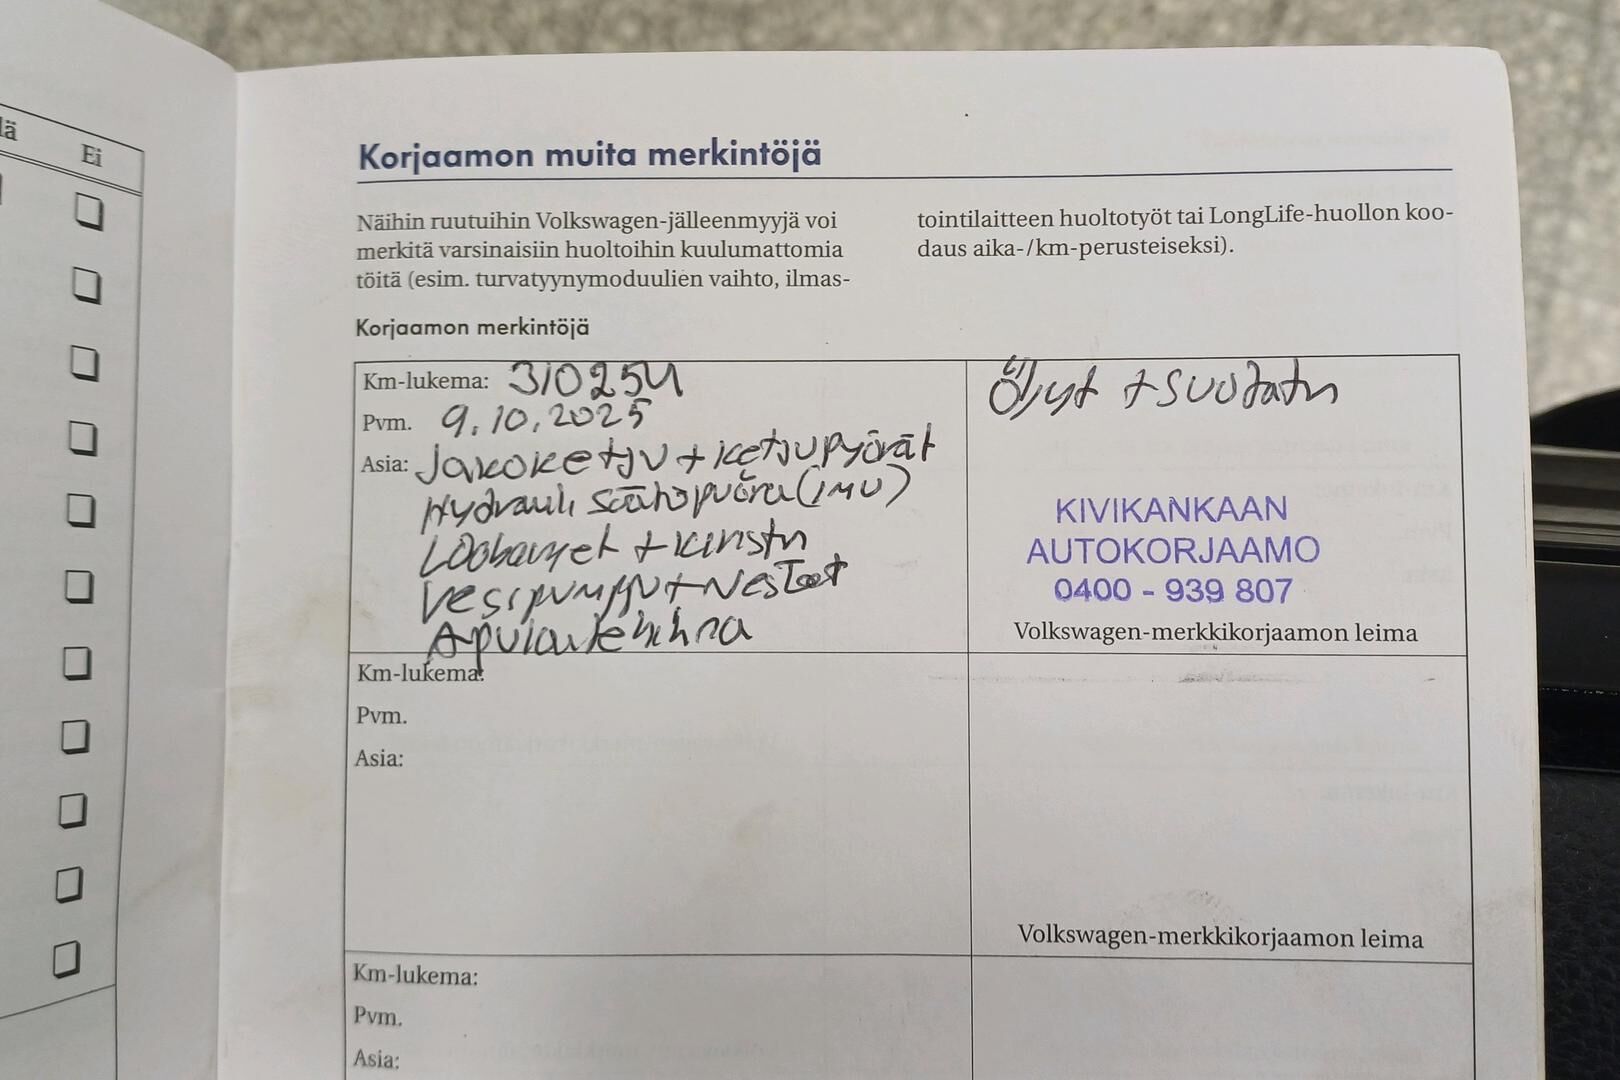 lä
Ei
Korjaamon muita merkintöjä
Näihin ruutuihin Volkswagen-jälleenmyyjä voi
merkitä varsinaisiin huoltoihin kuulumattomia
töitä (esim. turvatyynymoduulien vaihto, ilmas-
tointilaitteen huoltotyöt tai LongLife-huollon koo-
daus aika-/km-perusteiseksi).
Korjaamon merkintöjä
Km-lukema: 310254
Pvm. 9.10.2025
Asia: Jakoketju + ketjupyörät
Hydrauli säätöpyörä (IMU)
+ kiristin
Vesipumppu + Nesteet
Apulaitehihna
Öljyt + suodatin
KIVIKANKAAN
AUTOKORJAAMO
0400 - 939 807
Volkswagen-merkkikorjaamon leima
Km-lukema:
Pvm.
Asia:
Volkswagen-merkkikorjaamon leima
Km-lukema:
Pvm.
Asia: